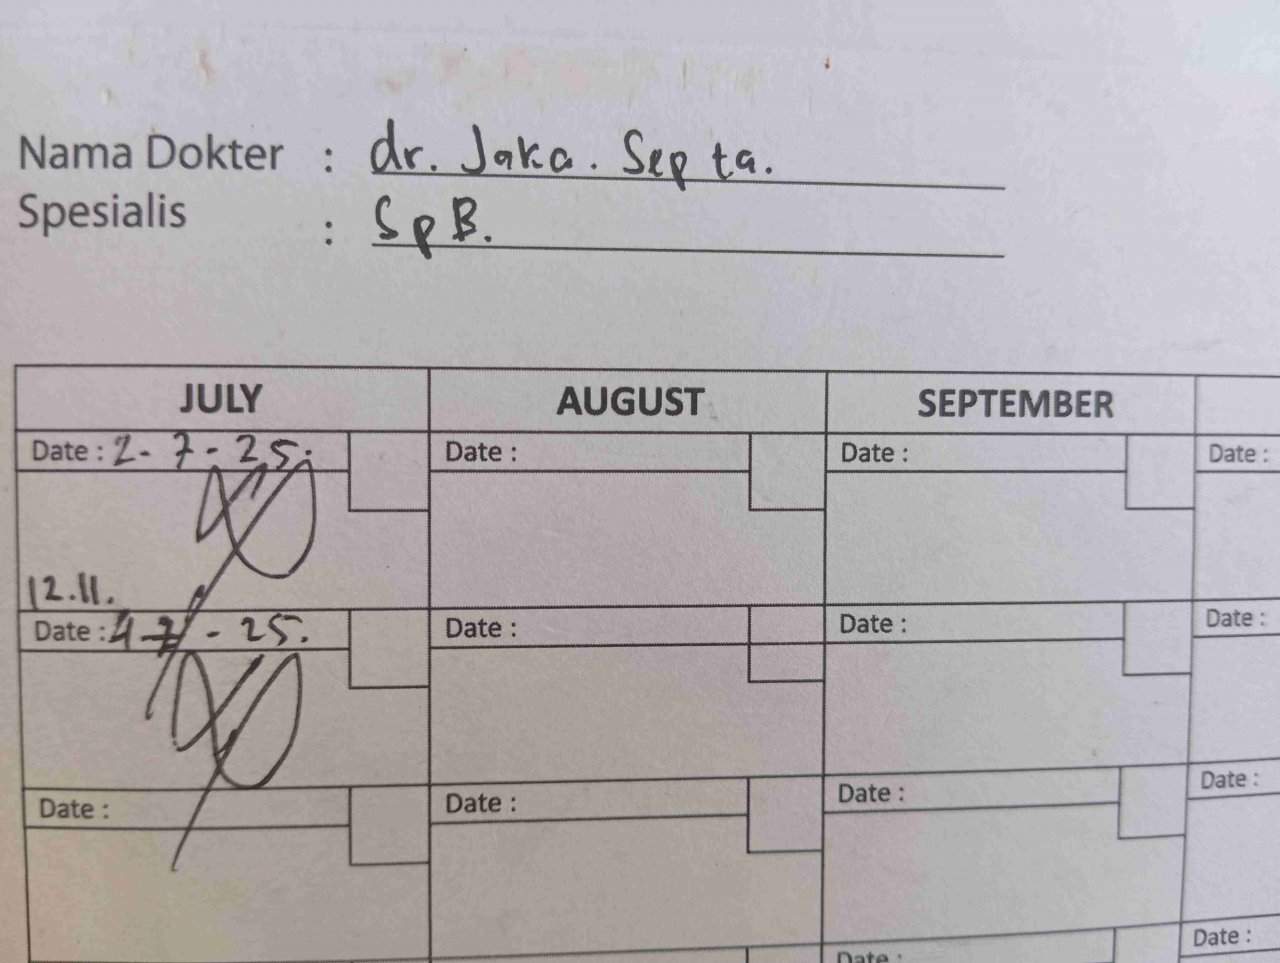 Nama Dokter : dr. Jaka. Septa.
Spesialis : SpB.
JULY AUGUST SEPTEMBER
Date : 2-7-25. Date : Date : Date :
12.11.
Date : 4-7-25. Date : Date : Date :
Date : Date : Date : Date :
Date : Date :